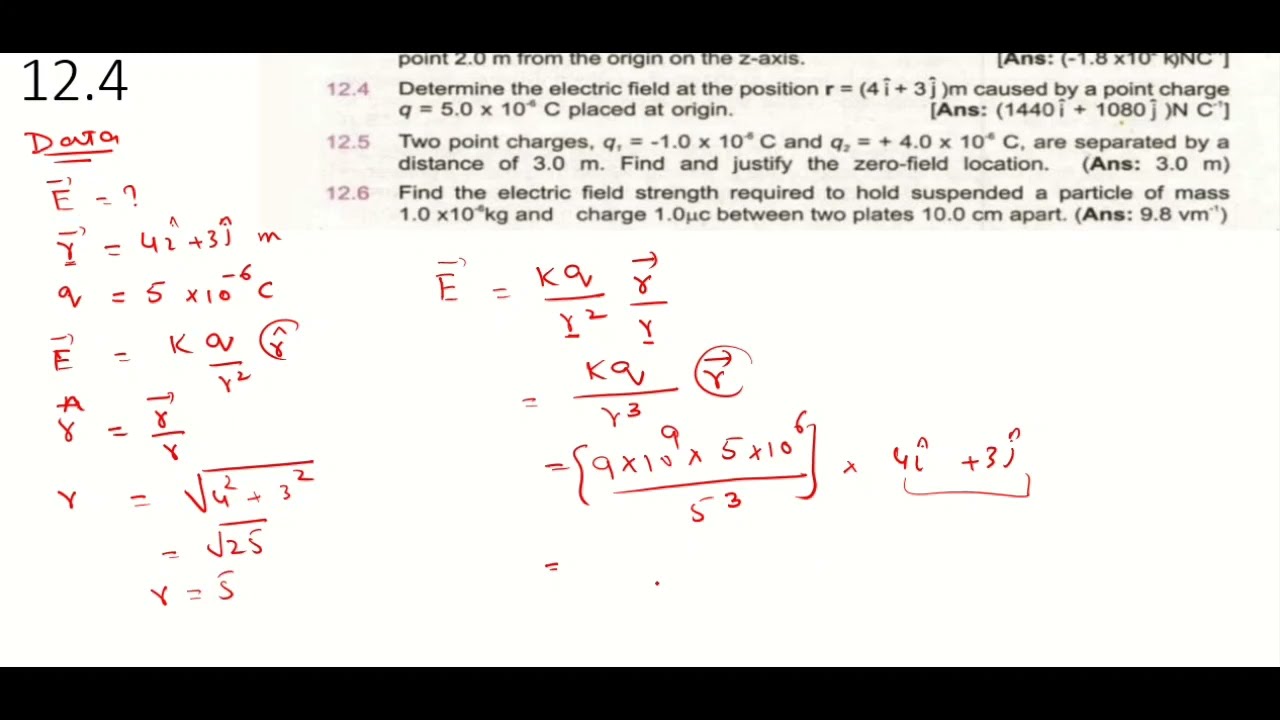 12.4
point 2.0 m from the origin on the z-axis. [Ans: (-1.8 x10² k̂)NC⁻¹]
12.4 Determine the electric field at the position r = (4î + 3ĵ)m caused by a point charge
q = 5.0 x 10⁻⁶ C placed at origin. [Ans: (1440î + 1080ĵ)N C⁻¹]
12.5 Two point charges, q₁ = -1.0 x 10⁻⁶ C and q₂ = + 4.0 x 10⁻⁶ C, are separated by a
distance of 3.0 m. Find and justify the zero-field location. (Ans: 3.0 m)
12.6 Find the electric field strength required to hold suspended a particle of mass
1.0 x10⁻⁶kg and charge 1.0μc between two plates 10.0 cm apart. (Ans: 9.8 vm⁻¹)
Data
E⃗ = ?
r⃗ = 4î + 3ĵ m
q = 5 × 10⁻⁶ C
E⃗ = K q/r² r̂
r̂ = r⃗/r
r = √4² + 3²
= √25
r = 5
E⃗ = Kq/r² r⃗/r
= Kq/r³ r⃗
= [9×10⁹ × 5×10⁶ / 5³] × 4î + 3ĵ
=